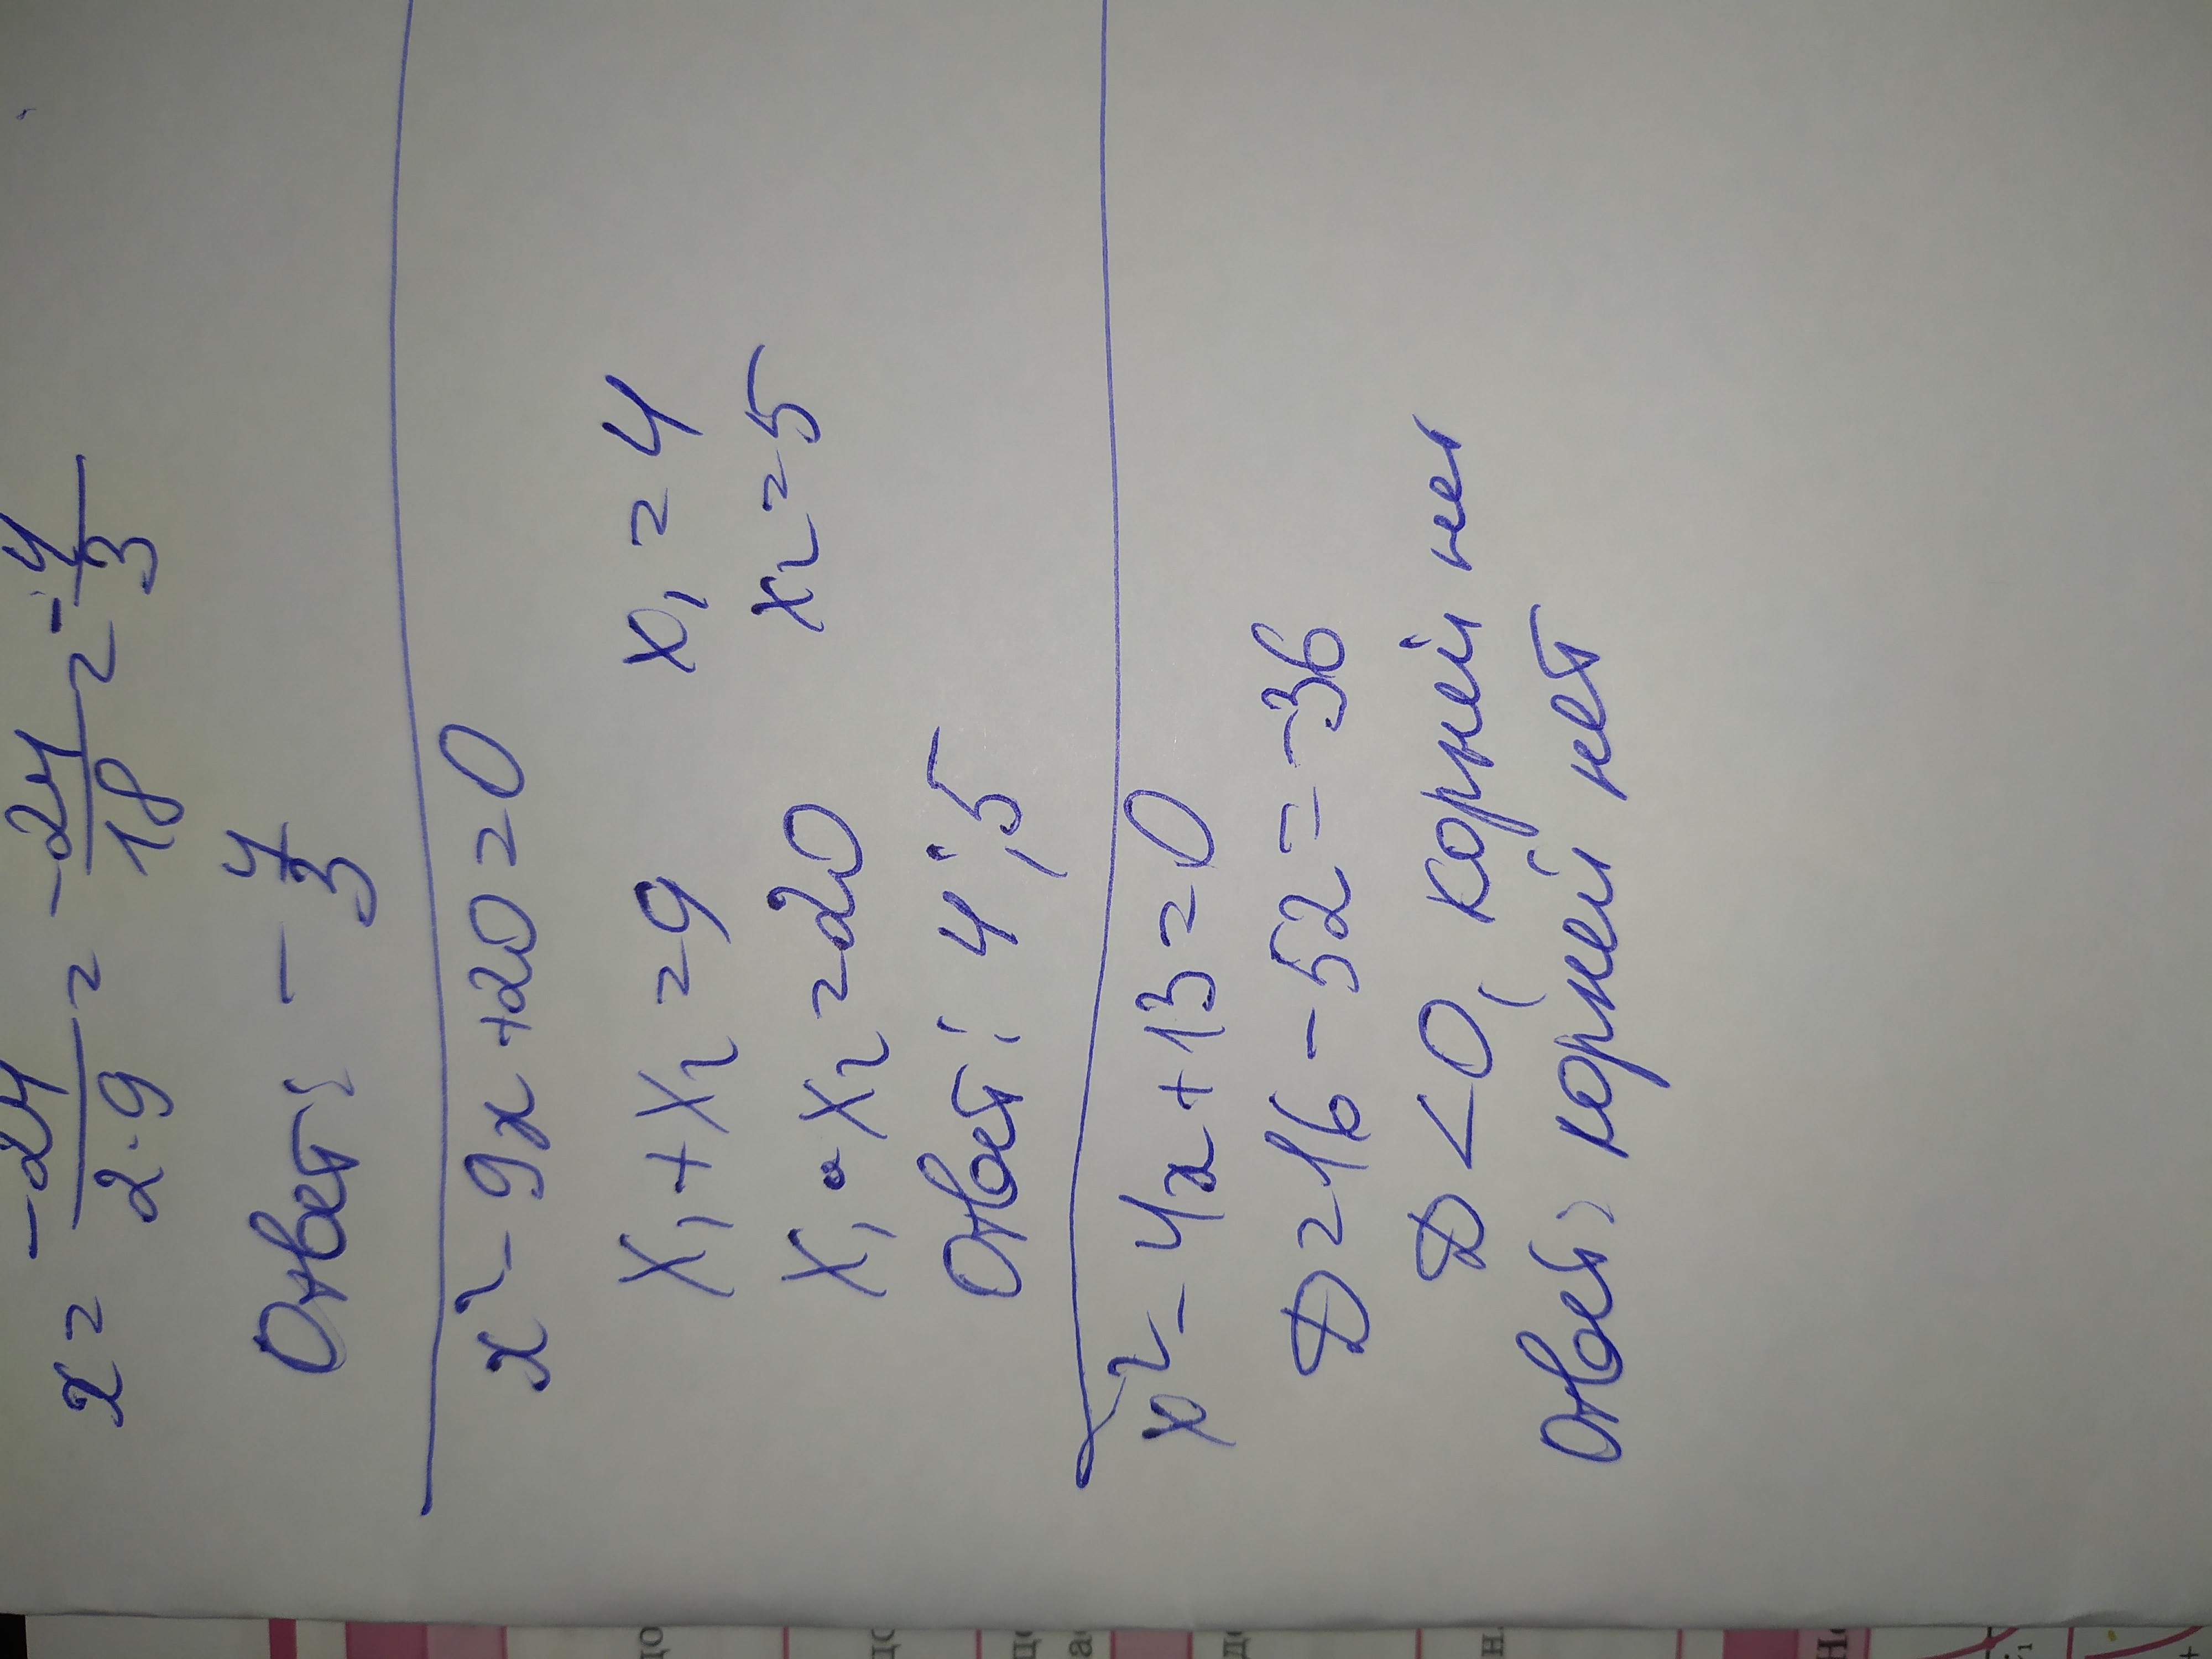 x = -24/2·9 = -24/18 = -4/3
Ответ: -4/3
x² - 9x + 20 = 0
x₁ + x₂ = 9 x₁ = 4
x₁ · x₂ = 20 x₂ = 5
Ответ: 4; 5
x² - 4x + 13 = 0
D = 16 - 52 = -36
D < 0, корней нет
Ответ: корней нет